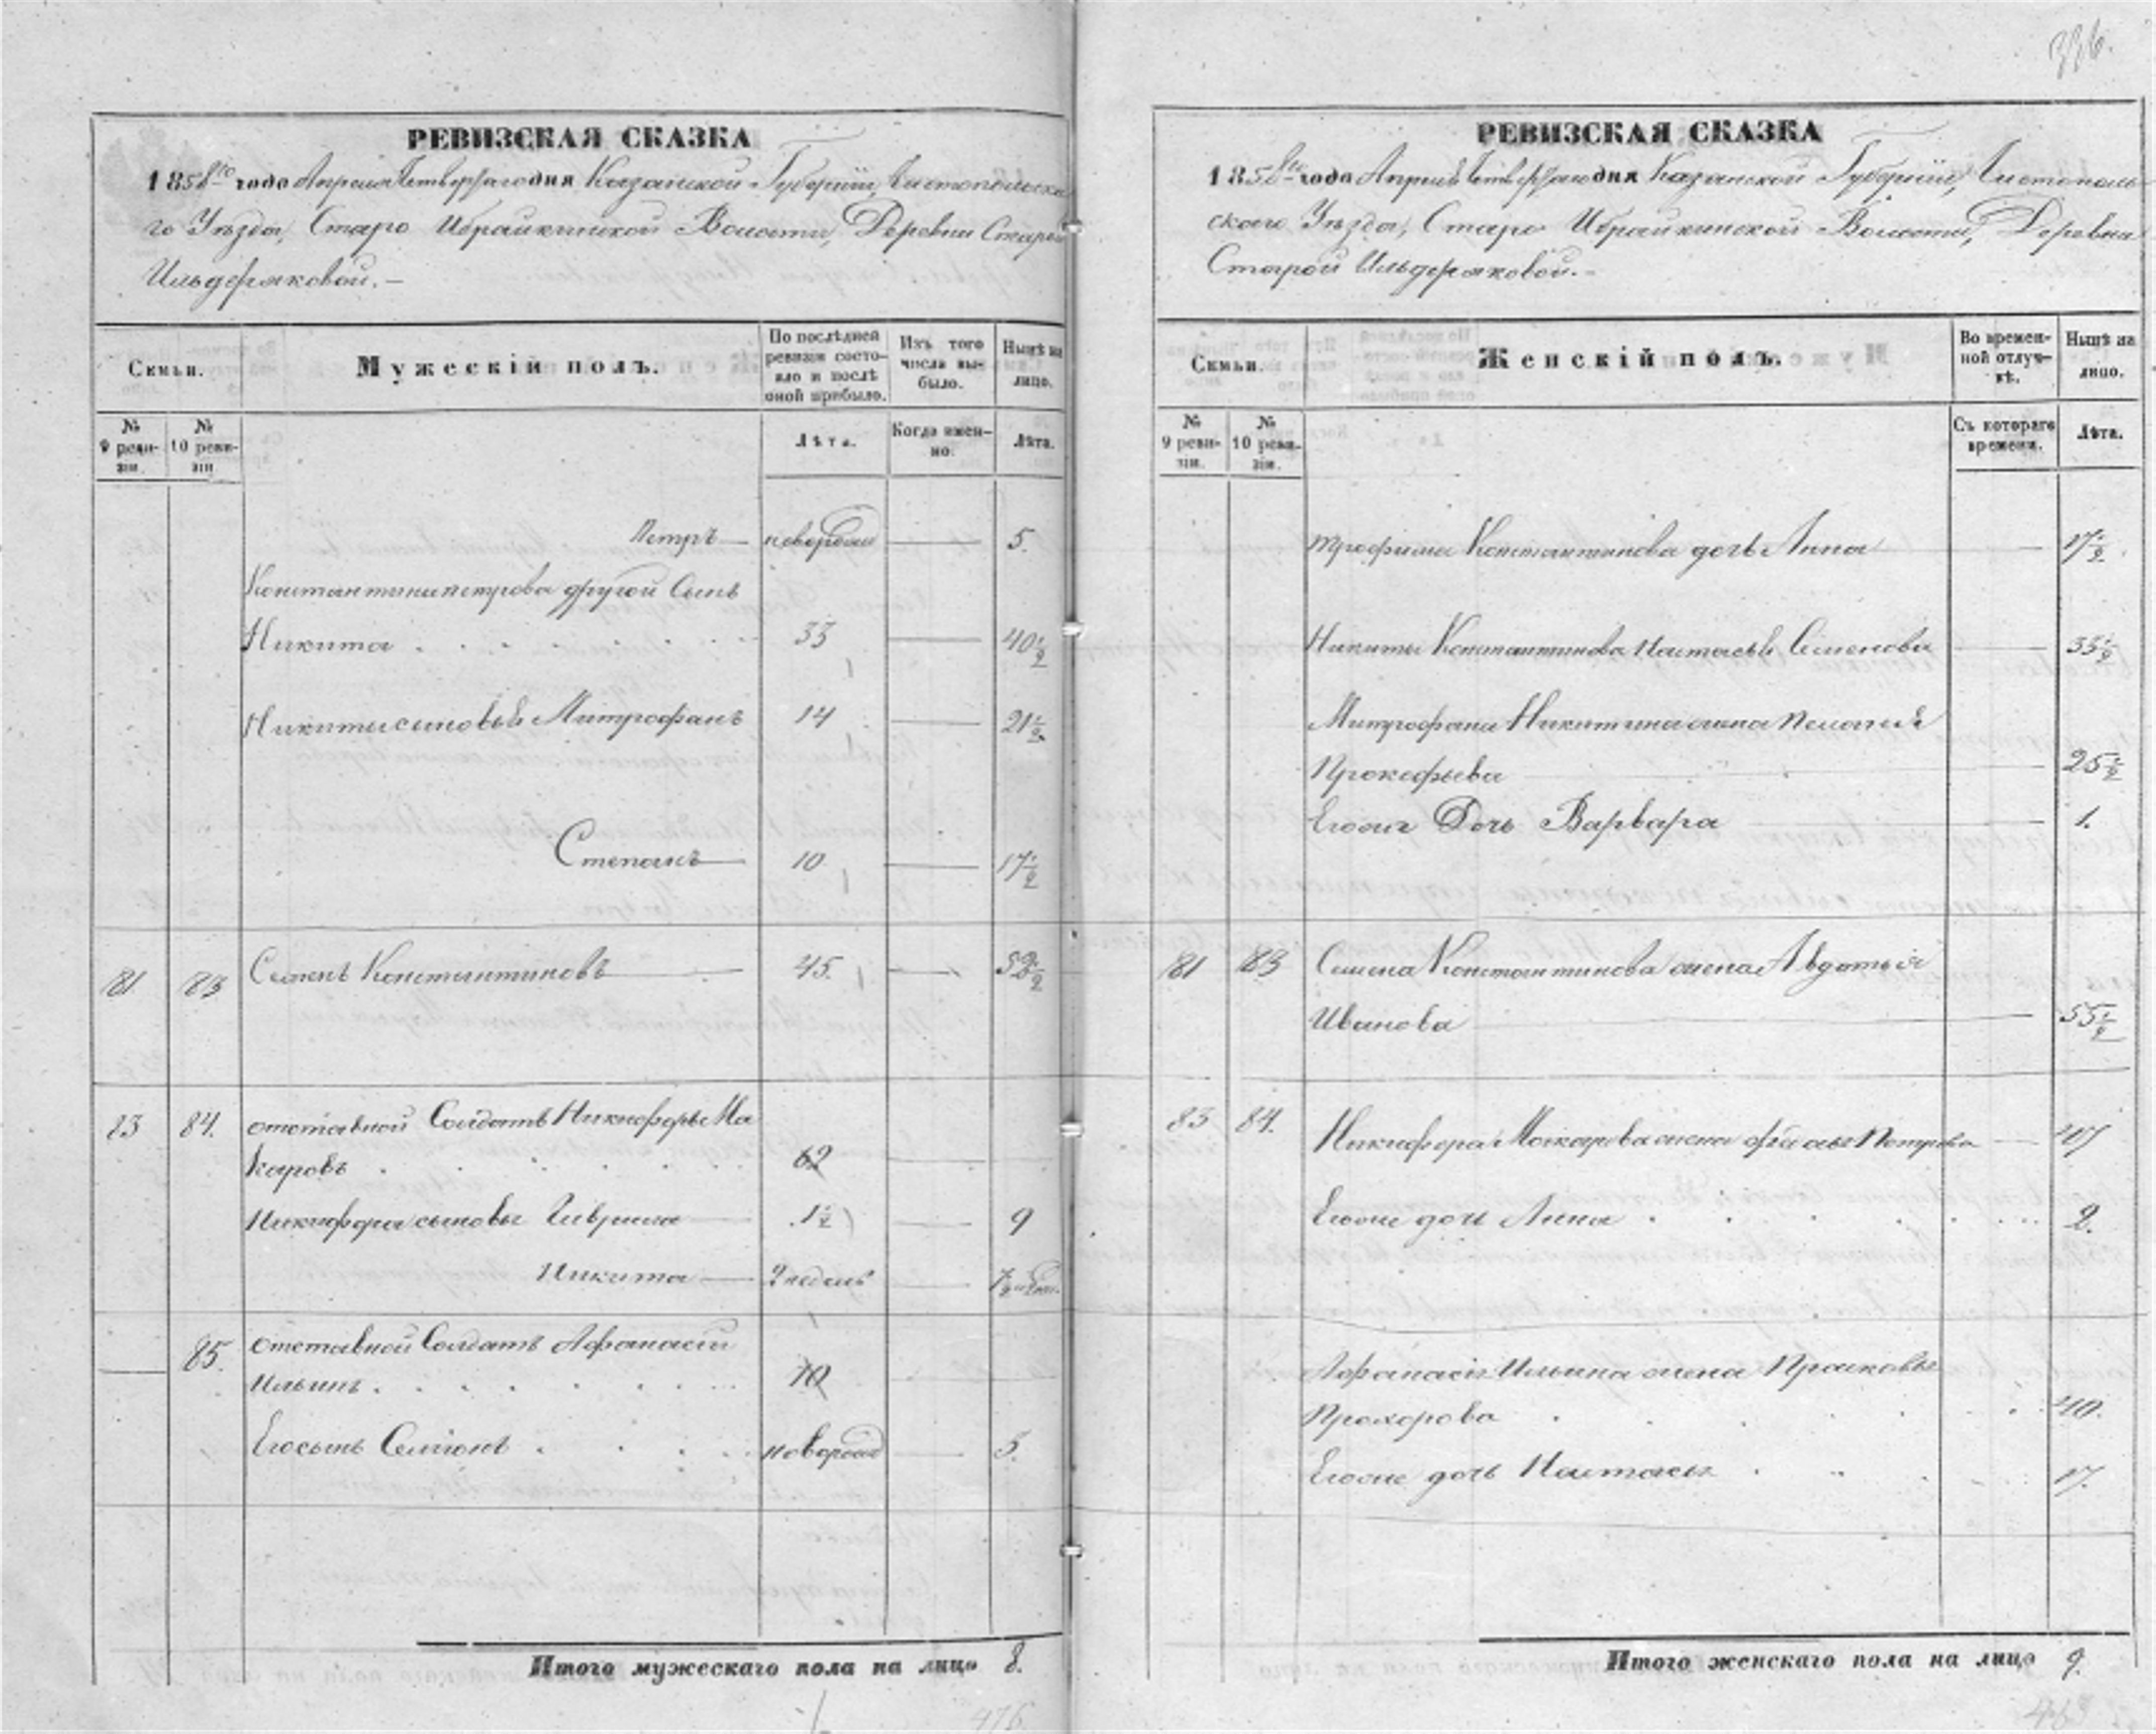 336.
РЕВИЗСКАЯ СКАЗКА
1858го года Апреля Четвертаго дня Казанской Губернiи, Чистопольска
го Уѣзда, Старо Ибрайкинской Волости, Деревни Старой
Ильдеряковой.-
Семьи.
Мужескiй полъ.
По послѣдней ревизiи состояло и послѣ оной прибыло.
Изъ того числа выбыло.
Нынѣ на лицо.
№ 9 ревизiи.
№ 10 ревизiи
Лѣта.
Когда именно.
Лѣта.
Петръ — новорожд — 5.
Константина Петрова другой Сынъ
Никита . . . . 33 — 40½
Никиты сыновья Митрофанъ 14 — 21½
Степанъ — 10 — 17½
81 83 Семенъ Константиновъ — 45. — 52½
83 84. отставной Солдатъ Никифоръ Ма
каровъ . . . . 62 —
Никифора сыновья Гаврила — 1½ — 9
Никита — 2 недель — 7½
85. отставной Солдатъ Афанасiй
Ильинъ . . . . 70
Его сынъ Семiонъ . . . новорожд — 5.
Итого мужескаго пола на лицо 8.
476
РЕВИЗСКАЯ СКАЗКА
1858го года Апреля Четвертаго дня Казанской Губернiи, Чистополь
скаго Уѣзда, Старо Ибрайкинской Волости, Деревни
Старой Ильдеряковой.-
Семьи.
Женскiй полъ.
Во временной отлучкѣ.
Нынѣ на лицо.
№ 9 ревизiи.
№ 10 ревизiи.
Съ котораго времени.
Лѣта.
Трофима Константинова дочь Анна — 17½
Никиты Константинова Настасья Семенова — 35½
Митрофана Никитина жена Пелагея
Прокофьева — 25½
Его Дочь Варвара — 1.
81 83 Семена Константинова жена Авдотья
Иванова — 55½
83 84. Никифора Макарова жена Петрова — 47
Его же дочь Анна . . . . 2.
Афанасiя Ильина жена Прасковья
Прохорова . . . . 40.
Его же дочь Настасья . . . 17.
Итого женскаго пола на лицо 9.